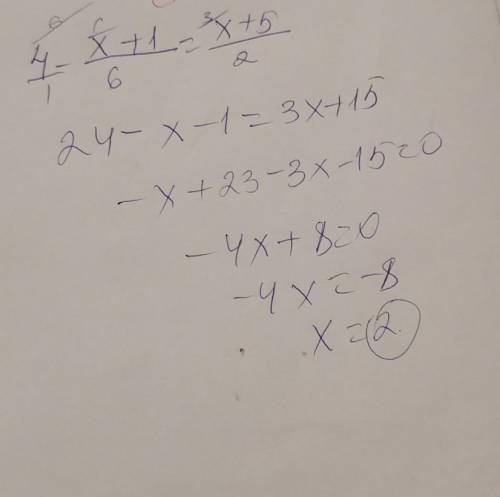 4/1 - (x+1)/6 = (x+5)/2
24 - x - 1 = 3x + 15
-x + 23 - 3x - 15 = 0
-4x + 8 = 0
-4x = -8
x = 2